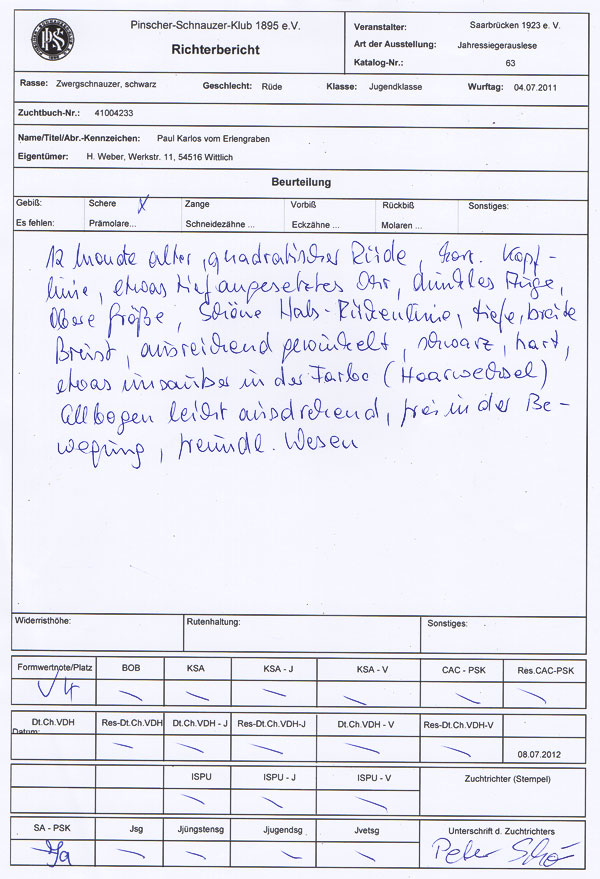 Pinscher-Schnauzer-Klub 1895 e.V.
Richterbericht
Veranstalter: Saarbrücken 1923 e. V.
Art der Ausstellung: Jahressiegerauslese
Katalog-Nr.: 63
Rasse: Zwergschnauzer, schwarz Geschlecht: Rüde Klasse: Jugendklasse Wurftag: 04.07.2011
Zuchtbuch-Nr.: 41004233
Name/Titel/Abr.-Kennzeichen: Paul Karlos vom Erlengraben
Eigentümer: H. Weber, Werkstr. 11, 54516 Wittlich
Beurteilung
Gebiß: Schere X Zange Vorbiß Rückbiß Sonstiges:
Es fehlen: Prämolare... Schneidezähne ... Eckzähne ... Molaren ...
12 Monate alter, quadratischer Rüde, korr. Kopf-
linie, etwas tief angesetztes Ohr, dunkles Auge,
obere Größe, schöne Hals-Rückenlinie, tiefe, breite
Brust, ausreichend gewinkelt, schwarz, hart,
etwas unsauber in der Farbe (Haarwechsel)
Ellbogen leicht ausdrehend, frei in der Be-
wegung, freundl. Wesen
Widerristhöhe: Rutenhaltung: Sonstiges:
Formwertnote/Platz BOB KSA KSA - J KSA - V CAC - PSK Res.CAC-PSK
V4
Dt.Ch.VDH Res-Dt.Ch.VDH Dt.Ch.VDH - J Res-Dt.Ch.VDH-J Dt.Ch.VDH - V Res-Dt.Ch.VDH-V
Datum:
08.07.2012
ISPU ISPU - J ISPU - V Zuchtrichter (Stempel)
SA - PSK Jsg Jjüngstensg Jjugendsg Jvetsg Unterschrift d. Zuchtrichters
Ja Peter